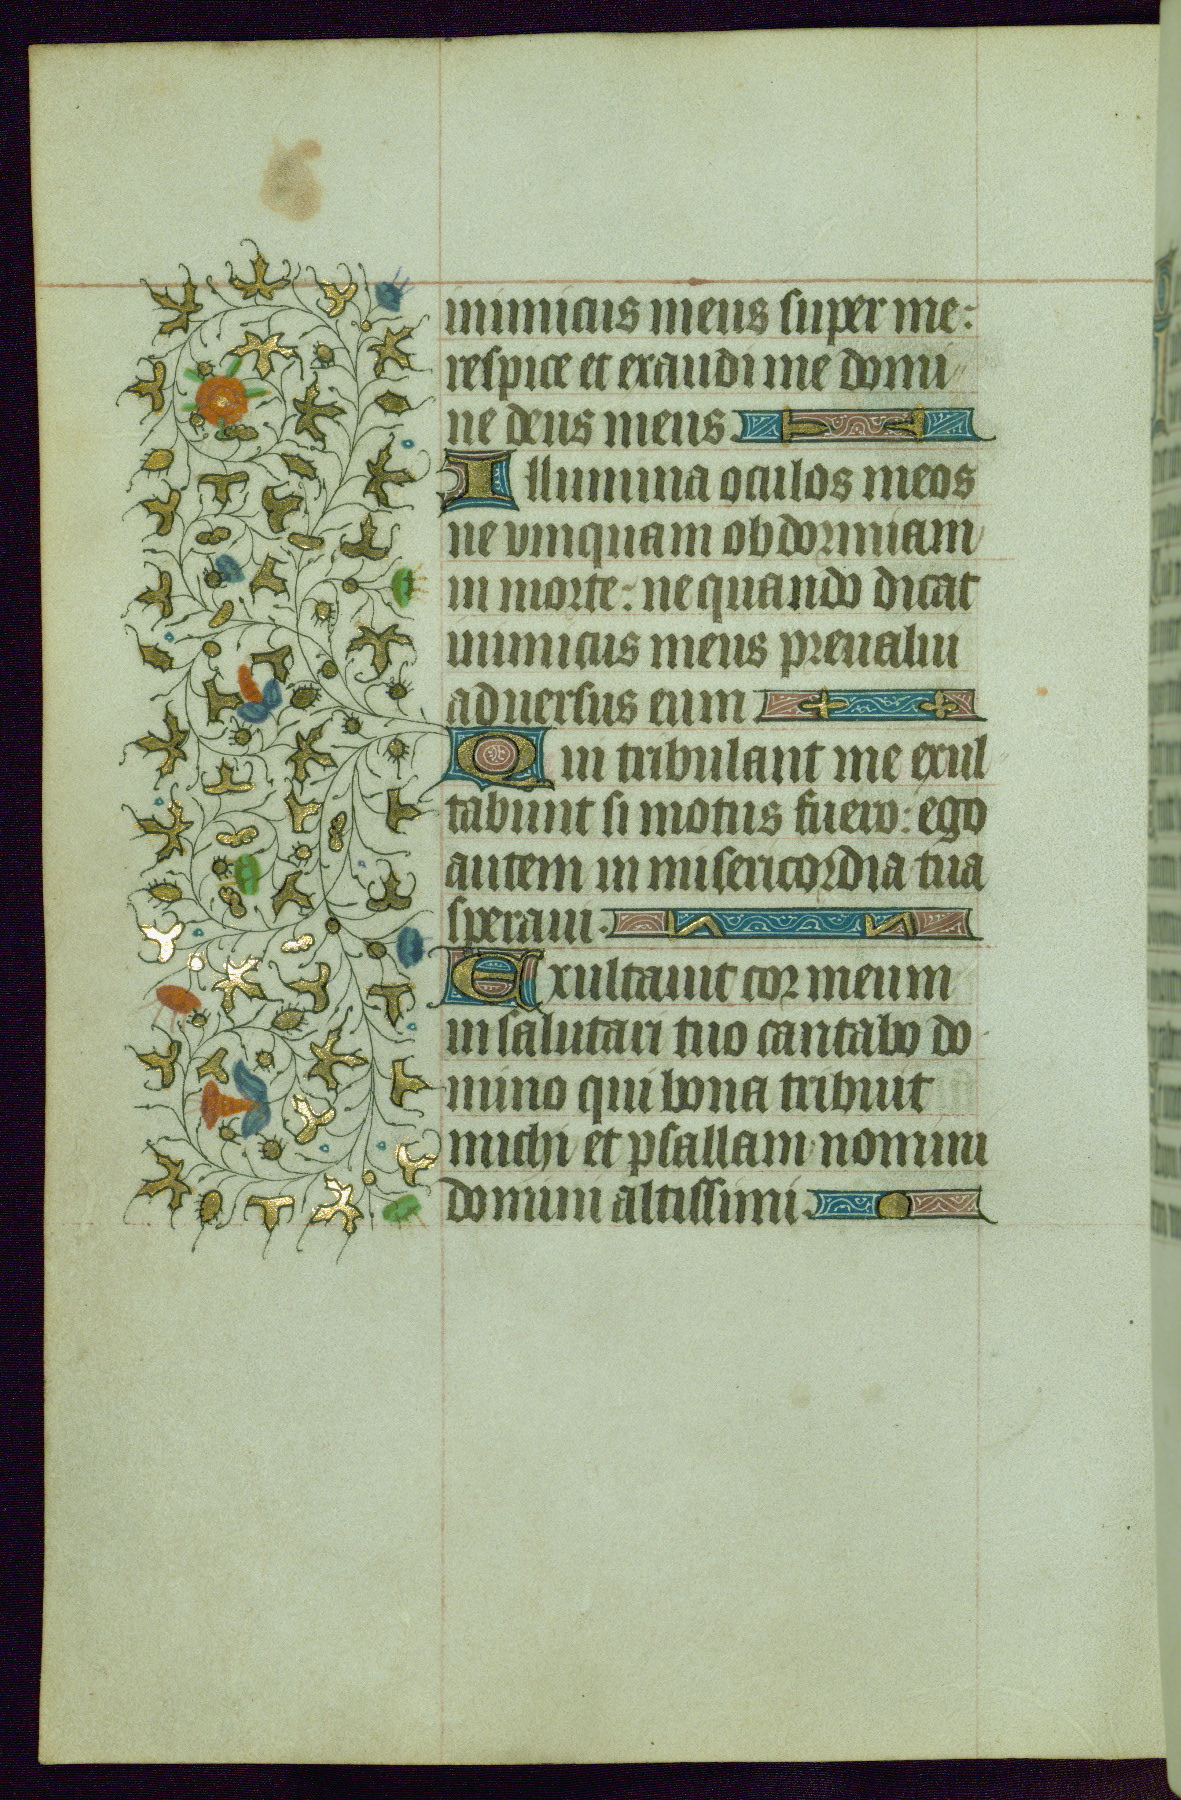 inimicus meus super me:
respice et exaudi me domi
ne deus meus
Illumina oculos meos
ne vmquam obdormiam
in morte: ne quando dicat
inimicus meus preualui
aduersus eum
Qui tribulant me exul
tabunt si motus fuero: ego
autem in misericordia tua
speraui.
Exultauit cor meum
in salutari tuo cantabo do
mino qui bona tribuit
michi et psallam nomini
domini altissimi.